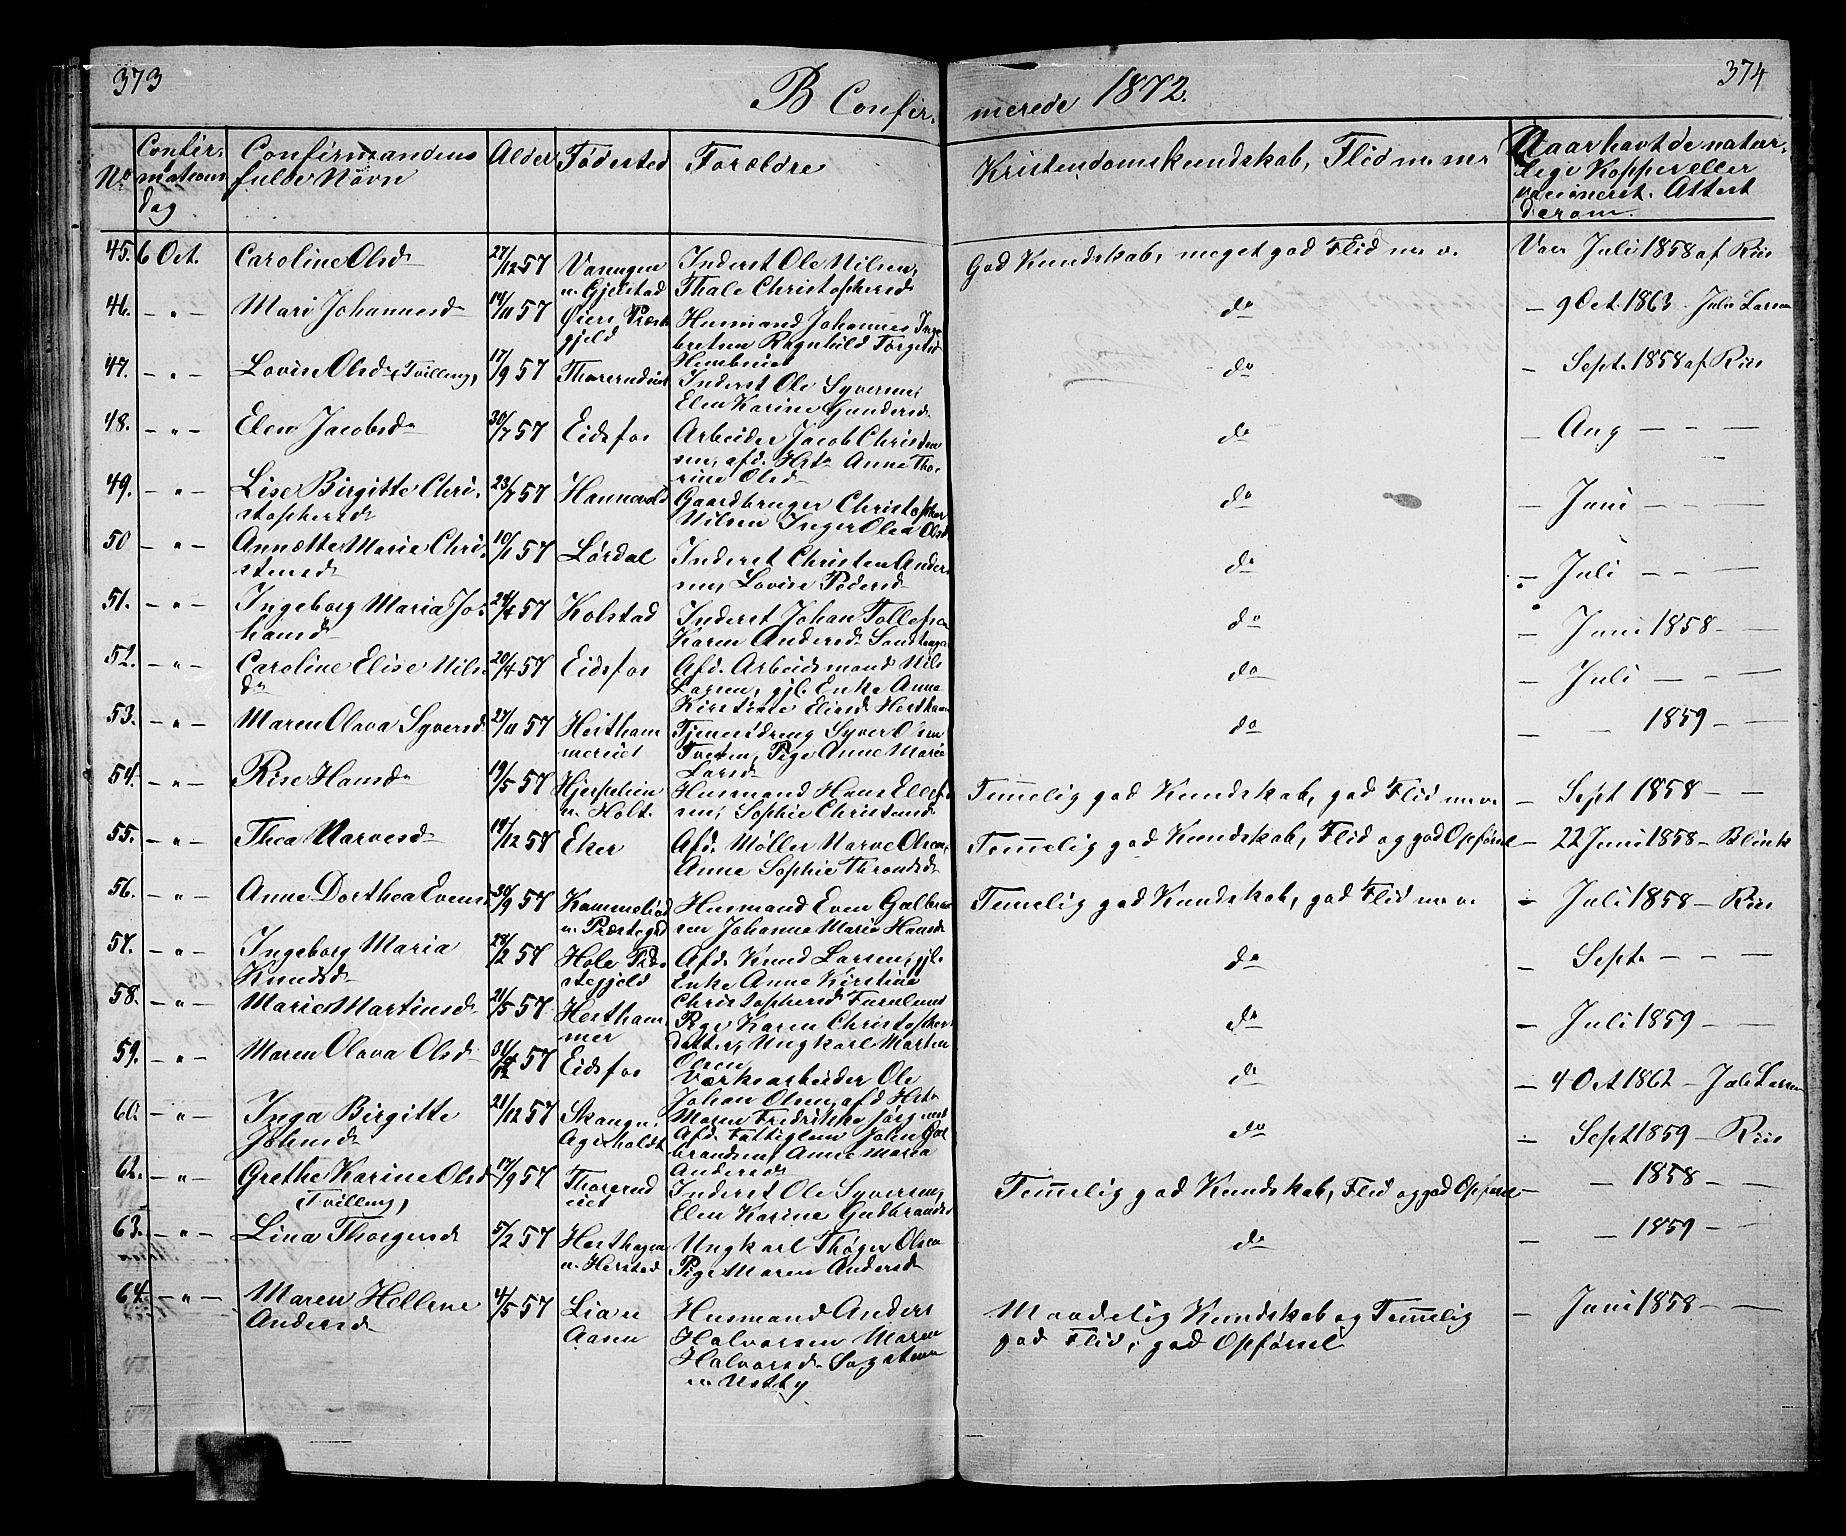 373
B Confir-
merede 1872.
374
No
Confir-
mations
dag
Confirmandens
fulde Navn
Alder
Fødested
Forældre
Kristendomskundskab, Flid m. m.
Naar havt de natur-
lige Kopper eller
vacineret. Attest
derom.
45. 6 Oct. Caroline Olsd. 27/12 57
Inderst Ole Nilsen,
n. Gjelstad Thale Christophersd.
God Kundskab, meget god Flid m. v. Vac. Juli 1858 af Riis
46. - " - Mari Johannesd. 14/11 57 Øiers Præste
gjeld
Husmand Johannes Inge
bretsen Ragnhild Torgersd.
do - 9 Oct. 1863 - Julie Larsen
47. - " - Lovise Olsd. (Tvilling) 17/9 57 Thorerudeiet
Inderst Ole Syversen,
Elen Karine Gundersd.
do - Sept. 1858 af Riis
48. - " - Elen Jacobsd. 30/7 57 Eidsfos Arbeider Jacob Christen
sen, afd. Hst. Anne Tho-
rine Olsd.
do - Aug - - -
49. - " - Lise Birgitte Chri-
stophersd. 23/7 57 Hannevold Gaardbruger Christopher
Nilsen Inger Olea Olsd.
do - Juni - - -
50 - " - Annætte Marie Chri-
stensd. 10/1 57 Lørdal Inderst Christen Ander
sen, Lovise Pedersd.
do - Juli - - -
51. - " - Ingeborg Maria Jo-
hansd. 24/4 57 Kolstad Inderst Johan Tollefsen
Karen Andersd.
do - Juni 1858 - -
52. - " - Caroline Elise Nils
d. 20/4 57 Eidsfos Afd. Arbeidsmand Nils
Larsen, gjl. Enke Anna
Kirstine Eliasd.
do - Juli - - -
53. - " - Maren Olava Syversd. 27/11 57 Hestham
mereiet Tjenestdreng Syver Olsen
Pige Anne Marie
Larsd.
do - - 1859 - -
54. - " - Rise Hansd. 19/5 57
u. Holt. Husmand Hans Ellef
sen, Sophie Christensd.
Temelig god Kundskab, god Flid m. v. - Sept 1858 - -
55. - " - Thea Narvesd. 19/12 57 Eker Afd. Møller Narve Olsen,
Anne Sophie Throndsd.
Temelig god Kundskab, Flid og god Opførsel - 22 Juni 1858 - Blink
56. - " - Anne Dorthea Evensd. 30/9 57
u. Præstegd. Husmand Even Gulbran
sen Johanne Marie Hansd.
Temelig god Kundskab, god Flid m. v. - Juli 1858 - Riis
57. - " - Ingeborg Maria
Knudsd. 28/2 57 Hole Præ-
stegjeld Afd. Knud Larsen, gjl.
Enke Anne Kirstine
Christophersd.
do - Sept. - - -
58. - " - Marie Martinsd. 21/5 57 Hestham-
mer Pige Karen Christopher
datter, Ungkarl Marten
Olsen
do - Juli 1859 - -
59. - " - Maren Olava Olsd. 31/12 57 Eidsfos Værksarbeider Ole
Johan Olsen, afd Hst.
Maren Fredrikke Jørgensd.
do - 4 Oct 1862 - Jul. Larsen
60. - " - Inga Birgitte
Johnsd. 21/12 57 Skaugn.
Agerholdt Afd. Fattiglem John Gul
brandsen, Anne Maria
Andersd.
do - Sept 1859 - Riis
62. - " - Grethe Karine Olsd.
(Tvilling) 17/9 57 Thorerud
eiet Inderst Ole Syversen,
Elen Karine Gudbrandsd.
Temelig god Kundskab, Flid og god Opførsel - - 1858 - -
63. - " - Lina Thorgersd. 5/2 57 Hesthagen
u. Hersted Ungkarl Thøger Olsen
Pige Maren Andersd.
do - - 1859 - -
64 - " - Maren Hellene
Andersd. 4/5 57 Lian
Aasen Husmand Anders
Halvorsen Maren
Halvorsd.
Maadelig Kundskab og Temelig
god Flid, god Opførsel - Juni 1858 - -